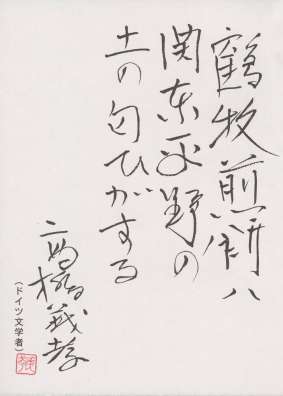 鶴牧煎餅ハ
関東平野の
土の匂ひがする
高橋義孝
(ドイツ文学者)